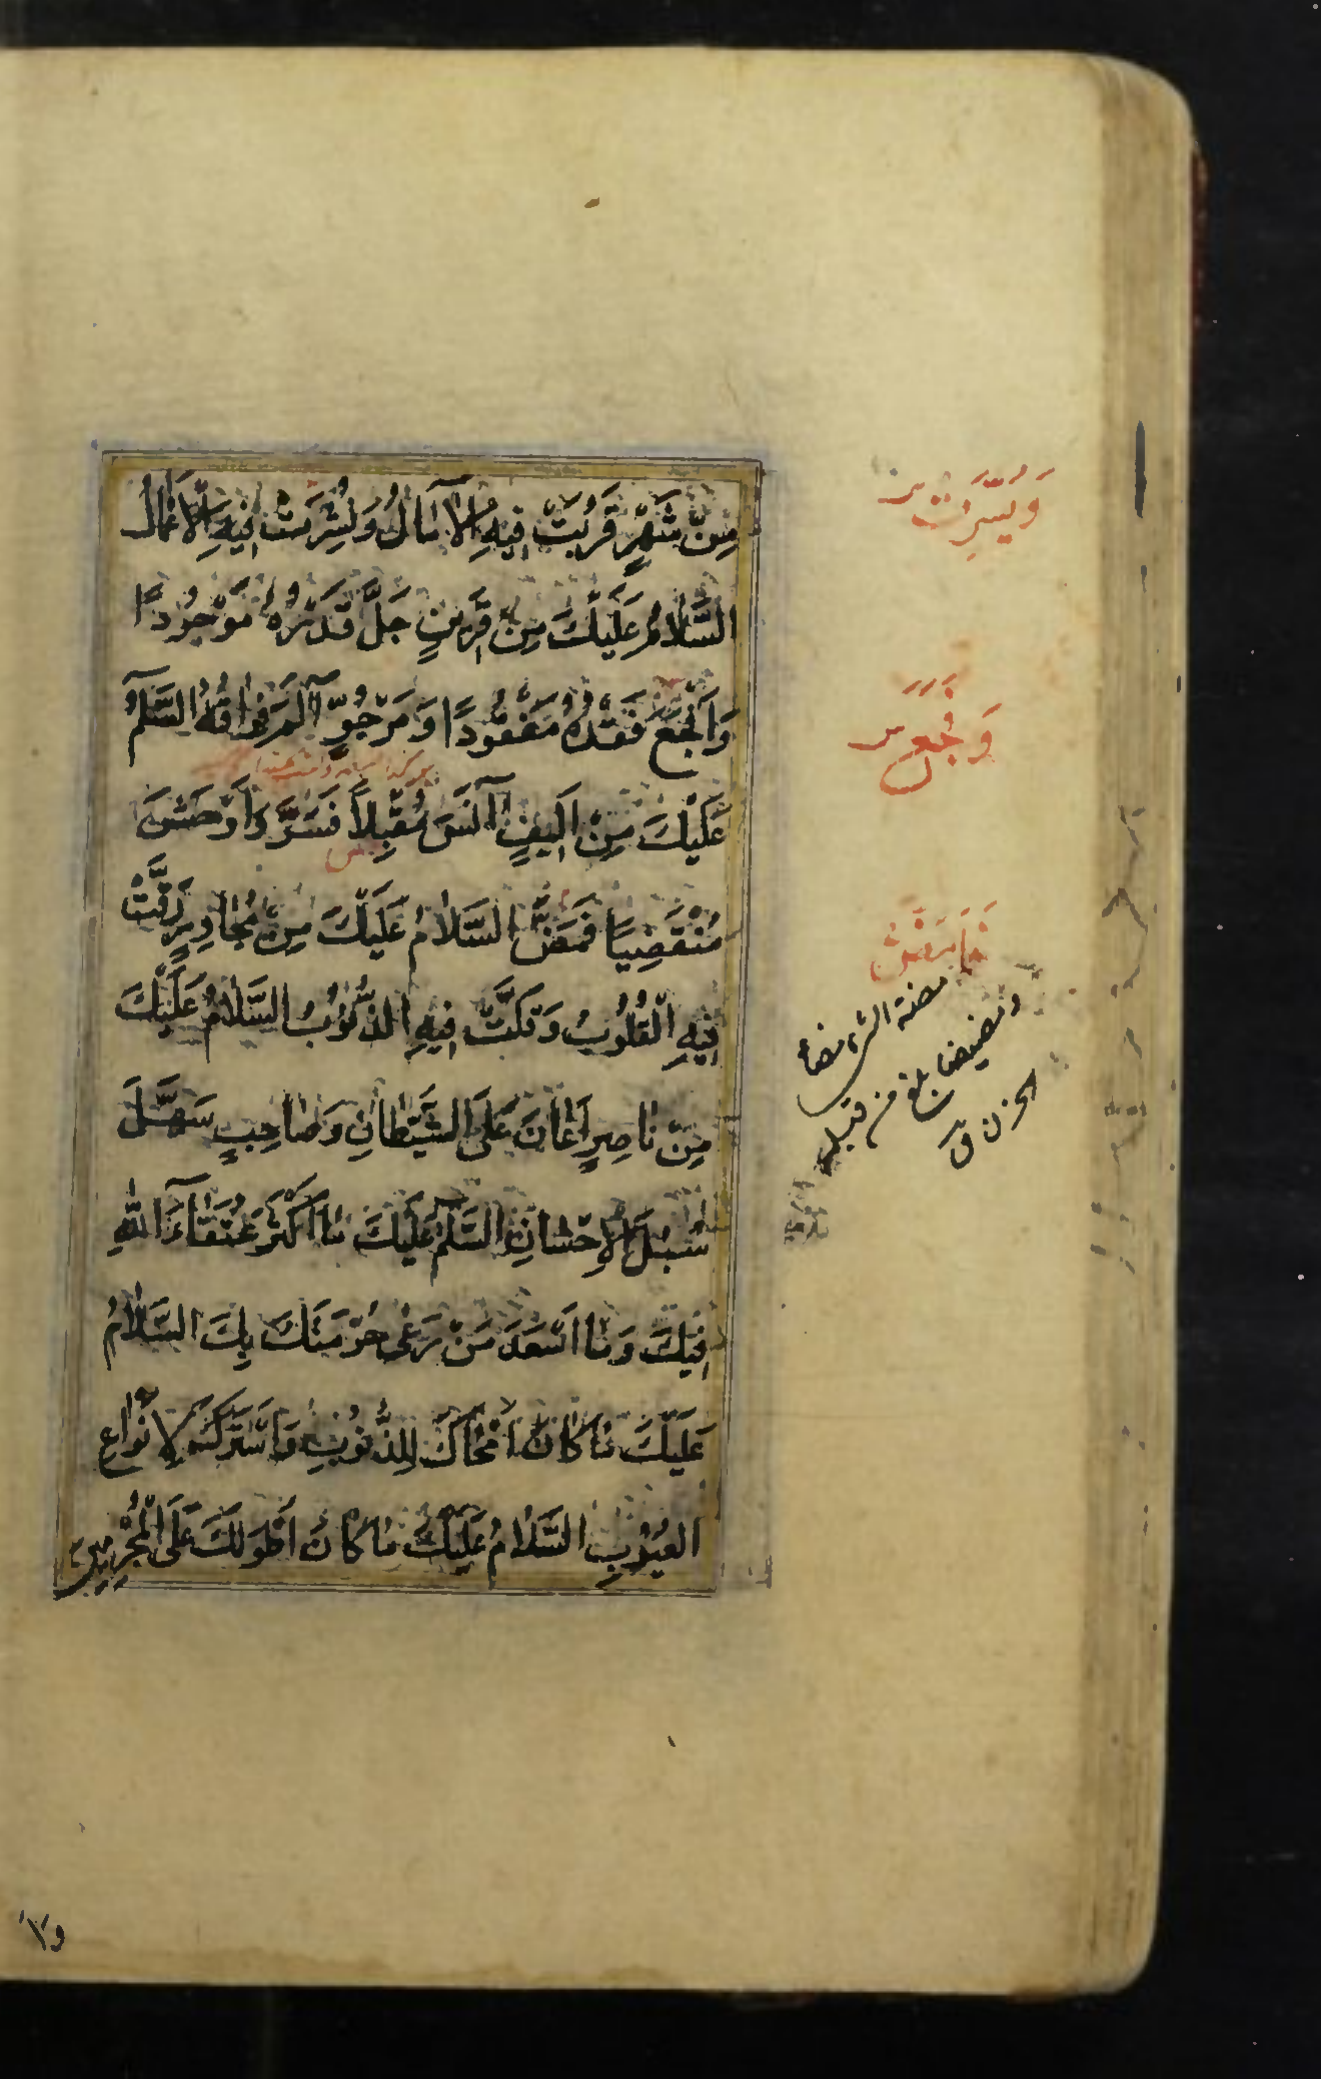 مِنْ شَهْرٍ قَرُبَتْ فِيهِ الْآمَالُ وَنُشِرَتْ فِيهِ الْأَعْمَالُ
السَّلَامُ عَلَيْكَ مِنْ قَرِينٍ جَلَّ قَدْرُهُ مَوْجُودًا
وَأَفْجَعَ فَقْدُهُ مَفْقُودًا وَمَرْجُوٍّ آلَمَ فِرَاقُهُ السَّلَامُ
عَلَيْكَ مِنْ أَلِيفٍ آنَسَ مُقْبِلًا فَسَرَّ وَأَوْحَشَ
مُنْقَضِيًا فَمَضَّ السَّلَامُ عَلَيْكَ مِنْ مُجَاوِرٍ رَقَّتْ
فِيهِ الْقُلُوبُ وَقَلَّتْ فِيهِ الذُّنُوبُ السَّلَامُ عَلَيْكَ
مِنْ نَاصِرٍ أَعَانَ عَلَى الشَّيْطَانِ وَصَاحِبٍ سَهَّلَ
سُبُلَ الْإِحْسَانِ السَّلَامُ عَلَيْكَ مَا أَكْثَرَ عُتَقَاءَ اللَّهِ
فِيكَ وَمَا أَسْعَدَ مَنْ رَعَى حُرْمَتَكَ بِكَ السَّلَامُ
عَلَيْكَ مَا كَانَ أَمْحَاكَ لِلذُّنُوبِ وَأَسْتَرَكَ لِأَنْوَاعِ
الْعُيُوبِ السَّلَامُ عَلَيْكَ مَا كَانَ أَطْوَلَكَ عَلَى الْمُجْرِمِينَ
وَيُسِّرَتْ
وَفُجِعَ